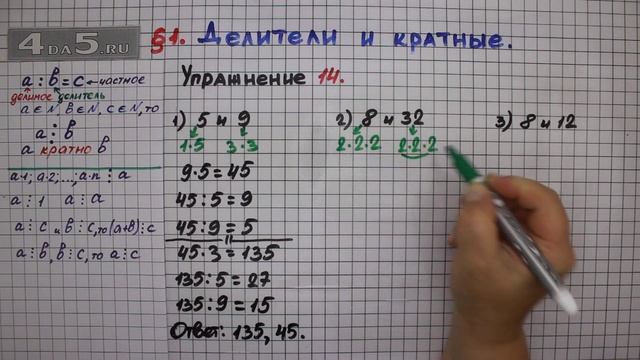 4DA5.RU
§1. Делители и кратные.
Упражнение 14.
а ⋮ в = с ← частное
делимое делитель
а ∈ N, в ∈ N, с ∈ N, то
а ⋮ в
а кратно в
а·1; а·2; ...; а·n ⋮ а
а ⋮ 1 а ⋮ а
а ⋮ с и в ⋮ с, то (а+в) ⋮ с
а ⋮ в, в ⋮ с, то а ⋮ с
1) 5 и 9
1·5 3·3
9·5 = 45
45 : 5 = 9
45 : 9 = 5
45·3 = 135
135 : 5 = 27
135 : 9 = 15
Ответ: 135, 45.
2) 8 и 32
2·2·2 2·2·2
3) 8 и 12